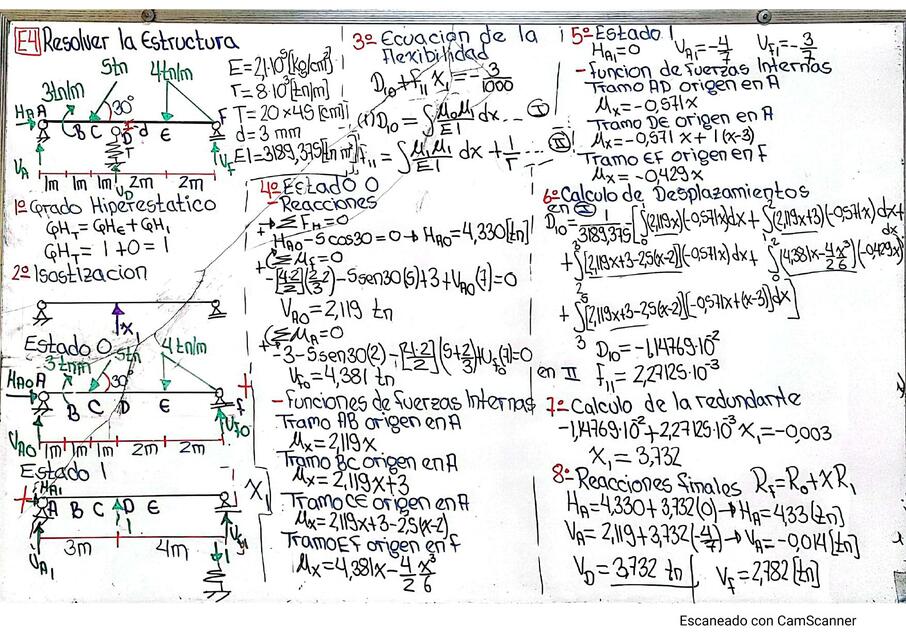 E4 Resolver la Estructura
3tn/m
5tn
4tn/m
30°
HA A
B C D d E F
T
VA
VD
VF
1m 1m 1m 2m 2m
E=2,1·10⁵[kg/cm²]
r=8·10³[tn/m]
T=20×45[cm]
d=3 mm
EI=3189,375[tn m²]
1º Grado Hiperestatico
GHT=GHE+GHI
GHT=1+0=1
2º Isostizacion
X1
Estado 0
3tnm
5tn
4tn/m
30°
HA0 A
B C D E F
VA0
VF0
1m 1m 1m 2m 2m
Estado 1
HA1
A B C D E
1
VA1
VF1
3m 4m
1
X1
3º Ecuación de la
flexibilidad
D10+f11 X1=-3/1000
(1) D10=∫M0M1/EI dx ... I
f11=∫M1M1/EI dx+1/r ... II
4º Estado 0
-Reacciones
+→ΣFH=0
HA0-5cos30=0→HA0=4,330[tn]
+ΣMf=0
-[4·2/2](2/3·2)-5sen30(5)+3+VA0(7)=0
VA0=2,119 tn
+ΣMA=0
-3-5sen30(2)-[4·2/2](5+2/3)+Vf0(7)=0
Vf0=4,381 tn
-funciones de fuerzas Internas
Tramo AB origen en A
Mx=2,119x
Tramo BC origen en A
Mx=2,119x+3
Tramo CE origen en A
Mx=2,119x+3-2,5(x-2)
Tramo EF origen en f
Mx=4,381x-4/2 x³/6
5º Estado 1
HA1=0 VA1=-4/7 Vf1=-3/7
-funcion de fuerzas Internas
Tramo AD origen en A
Mx=-0,571x
Tramo DE origen en A
Mx=-0,571x+1(x-3)
Tramo EF origen en f
Mx=-0,429x
6º Calculo de Desplazamientos
en I
D10=1/3189,375[∫₀¹(2,119x)(-0,571x)dx+∫₁²(2,119x+3)(-0,571x)dx+
+∫₂³[2,119x+3-2,5(x-2)](-0,571x)dx+∫₀²(4,381x-4/2 x³/6)(-0,429x)dx
+∫₃⁵[2,119x+3-2,5(x-2)][-0,571x+(x-3)]dx]
D10=-1,14769·10²
en II f11=2,27125·10⁻³
7º Calculo de la redundante
-1,14769·10²+2,27125·10⁻³X1=-0,003
X1=3,732
8º-Reacciones finales Rf=R0+XR1
HA=4,330+3,732(0)→HA=4,33[tn]
VA=2,119+3,732(-4/7)→VA=-0,014[tn]
VD=3,732 tn Vf=2,782[tn]
Escaneado con CamScanner